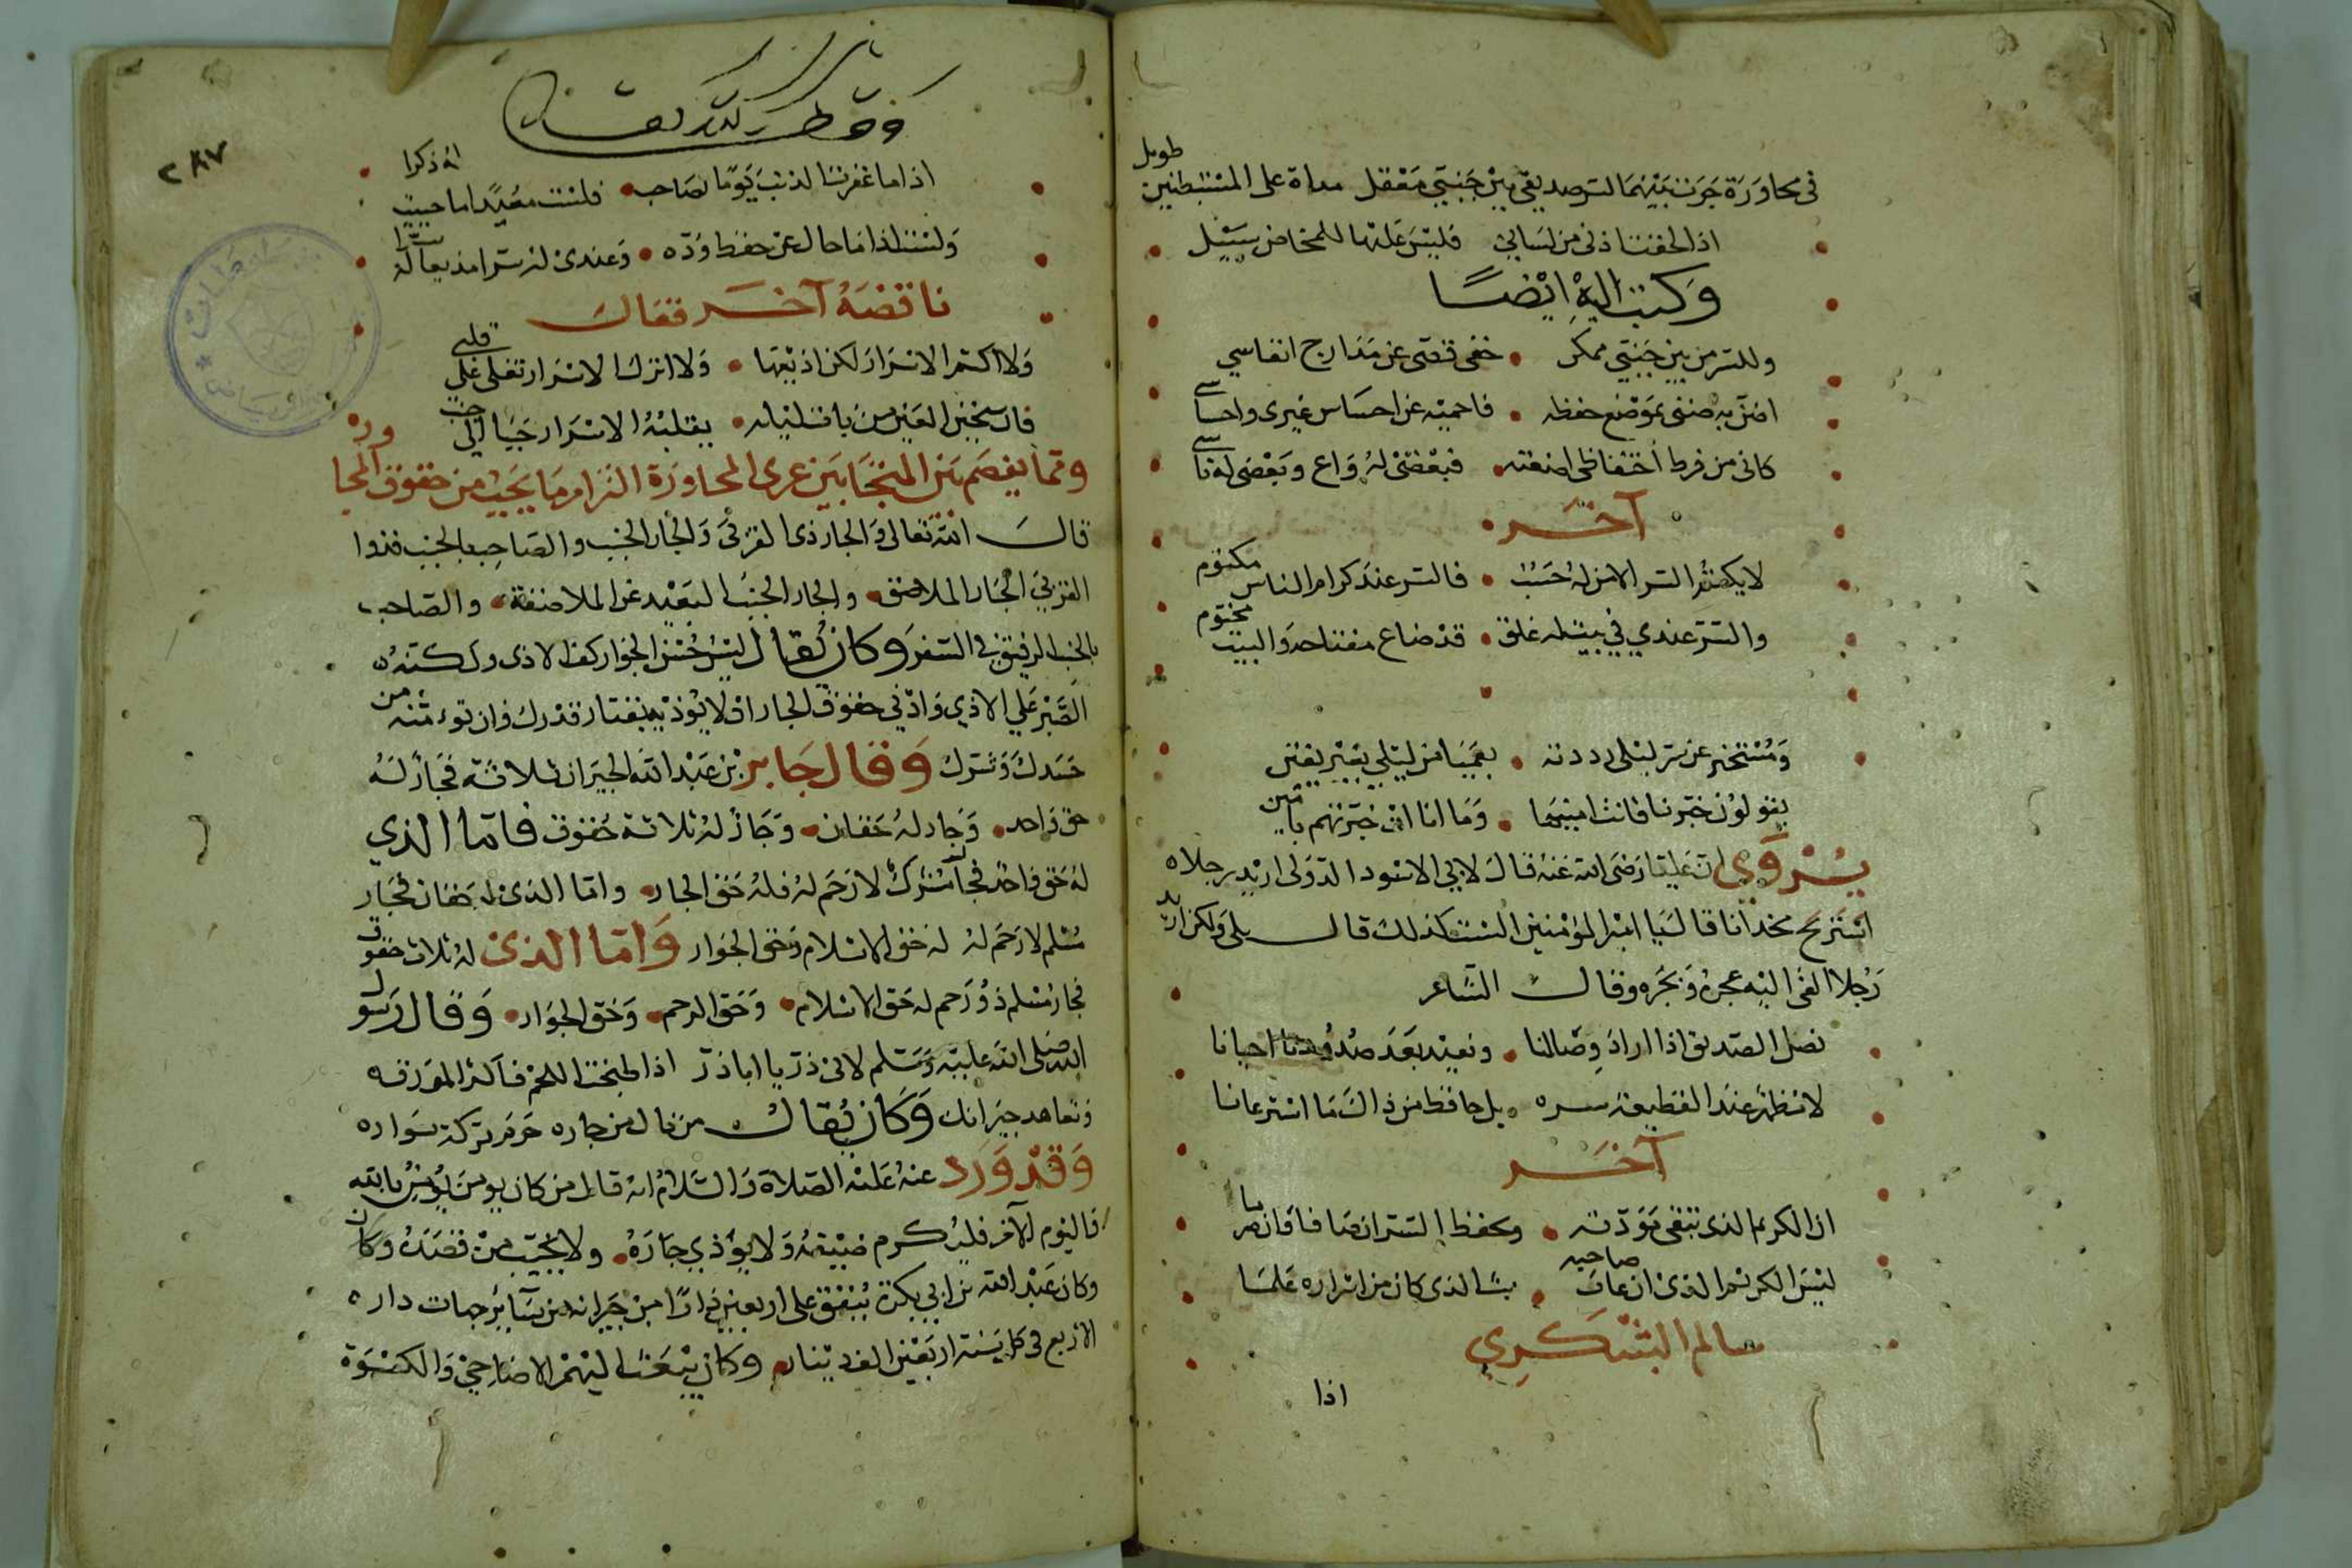 في محاورة جرت بينهما لسر صديقي بين جنبتي معقل مداه على المستبطنين طويل
اذا لحفت اذني من لساني فليس عليها للمخاض سبيل
وكتب اليه ايضا
وللسر من بين جنبتي ممكن خفي قصي عن مدارج انفاسي
اضن به ضني بموضع حفظه فاحميته عن احساس غيري واحساسي
كاني من فرط احتفاظي اضعته فبعضي له واع وبعضي له ناسي
آخر
لا يكتم السر الا من له حسب فالسر عند كرام الناس مكتوم
والسر عندي في بيت له غلق قد ضاع مفتاحه والبيت مختوم
ومستخبر عن سر ليلى رددته بعمياء من ليلى بغير يقين
يقولون خبرنا فانت امينها وما انا ان خبرتهم بامين
يروى ان عليا رضى الله عنه قال لابي الاسود الدولى اريد رجلا
استريح قال يا امير المؤمنين الست كذلك قال بلى ولكن اريد
رجلا القى اليه عجره وبجره وقال الشاعر
نصل الصديق اذا اراد وصالنا ونعيد بعد صدودنا احيانا
لا نظهر عند القطيعة سره بل حافظ من ذاك ما استرعانا
آخر
ان الكريم الذى تبقى مودته ويحفظ السر ان صافا وان صرما
ليس الكريم الذى ان غاب صاحبه بث الذى كان من اسراره علما
سالم البشكري
اذا
٢٨٧
اذا ما غفرنا لذنب يوما لصاحب فلست معيدا ما حييت له ذكرا
ولست اذا ما حال عن حفظ وده وعندى له سرا مذيعا له سرا
ناقضه آخر فقال
ولا اكتم الاسرار لكن اذيعها ولا اترك الاسرار تغلي على قلبي
فان سخين العين من بات ليله يقلبه الاسرار جنبا الى جنب
ومما يفصم بين المتحابين عرى المحاورة التزام ما يجب من حقوق المجاوره
قال الله تعالى والجار ذى القربى والجار الجنب والصاحب بالجنب فذوا
القربى الجار الملاصق والجار الجنب البعيد عن الملاصقة والصاحب
بالجنب الرفيق في السفر وكان يقال ليس حسن الجوار كف الاذى ولكنه
الصبر على الاذى وادنى حقوق الجار ان لا توذيه بقتار قدرك وان تومنه من
حسدك وشرك وقال جابر بن عبد الله الجيران ثلاثة فجار له
حق واحد وجار له حقان وجار له ثلاثة حقوق فاما الذي
له حق واحد فجار مشرك لا رحم له فله حق الجار واما الذى له حقان فجار
مسلم لا رحم له له حق الاسلام وحق الجوار واما الذى له ثلاث حقوق
فجار مسلم ذو رحم له حق الاسلام وحق الرحم وحق الجوار وقال رسول
الله صلى الله عليه وسلم لابى ذر يا اباذر اذا طبخت اللحم فاكثر المرقه
وتعاهد جيرانك وكان يقال من نال من جاره حرم بركة
وقد ورد عنه عليه الصلاة والسلام انه قال من كان يومن بالله
واليوم الآخر فليكرم ضيفه ولا يؤذي جاره ولا يخيب من قصده وكان
وكان عبد الله بن ابي بكرة ينفق على اربعين دارا من جيرانه من سآئر جهات داره
الاربع في كل سنة اربعين الف دينار وكان يبعث اليهم الاضاحي والكسوة